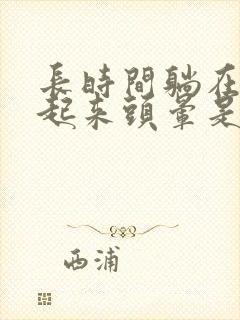 長時間躺在
起来頭暈是
西浦